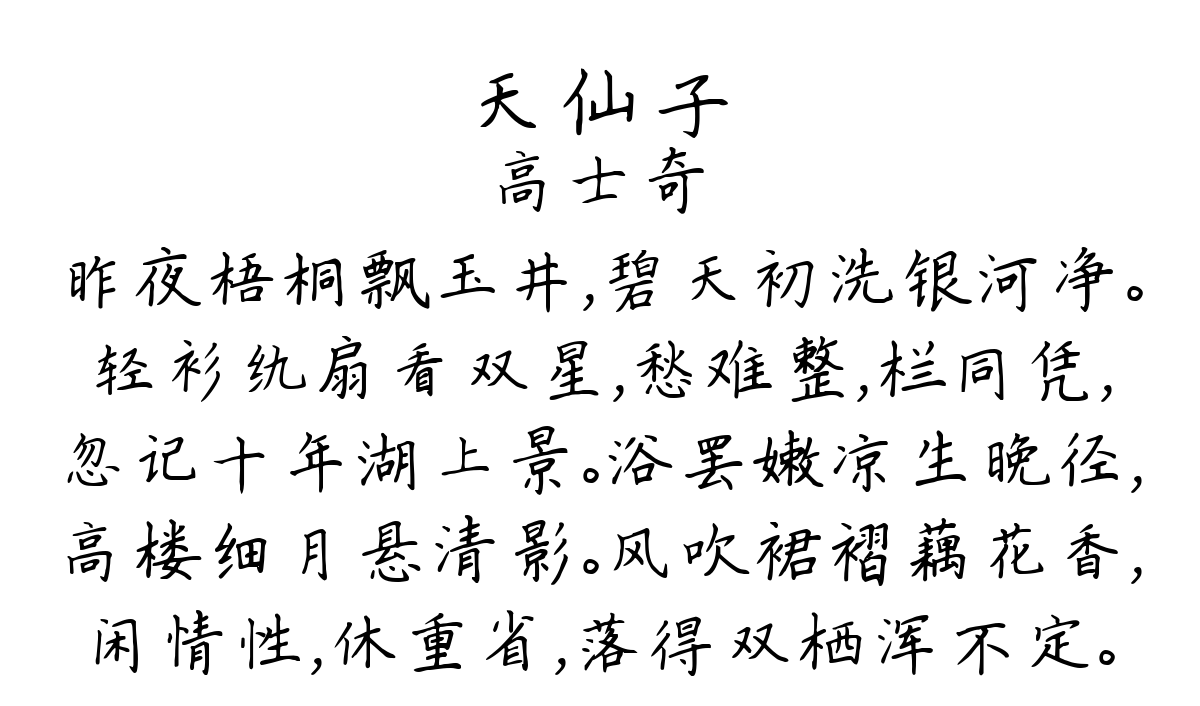 天仙子
高士奇
昨夜梧桐飘玉井,碧天初洗银河净。
轻衫纨扇看双星,愁难整,栏同凭,
忽记十年湖上景。浴罢嫩凉生晚径,
高楼细月悬清影。风吹裙褶藕花香,
闲情性,休重省,落得双栖浑不定。